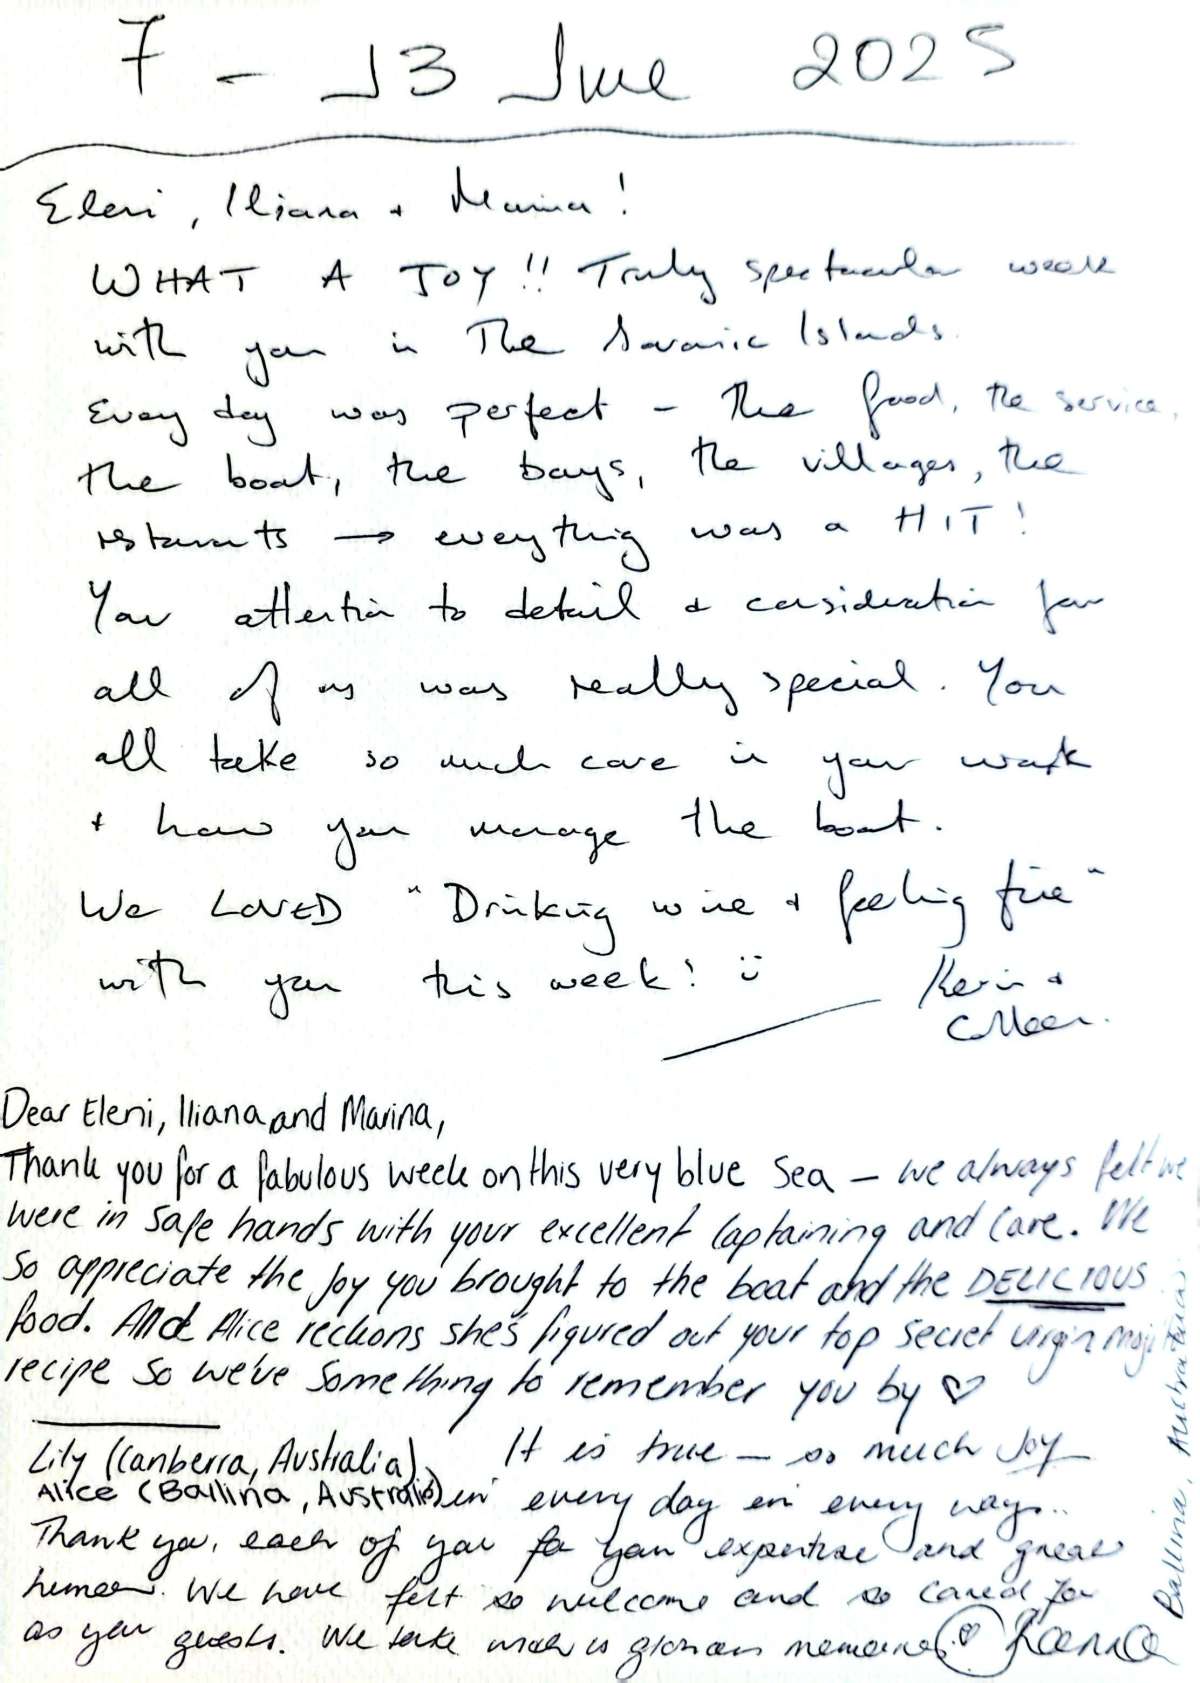 7 - 13 June 2025
Eleni, Iliana + Marina!
WHAT A JOY!! Truly spectacular week
with you in the Saronic Islands.
Every day was perfect - the food, the service,
the boat, the bays, the villages, the
restaurants → everything was a HIT!
Your attention to detail + consideration for
all of us was really special. You
all take so much care in your work
+ how you manage the boat.
We LOVED "Drinking wine + feeling fine"
with you this week! :)
Kevin +
Colleen.
Dear Eleni, Iliana and Marina,
Thank you for a fabulous week on this very blue sea - we always felt we
were in safe hands with your excellent captaining and care. We
so appreciate the joy you brought to the boat and the DELICIOUS
food. And Alice reckons she's figured out your top secret virgin moji
recipe so we've something to remember you by ♡
Lily (Canberra, Australia)
Alice (Ballina, Australia)
It is true - so much Joy
in every day in every way..
Thank you, each of you for your expertise and great
humour. We have felt so welcome and so cared for
as your guests. We take with us glorious memories. ♡
Ballina, Australia